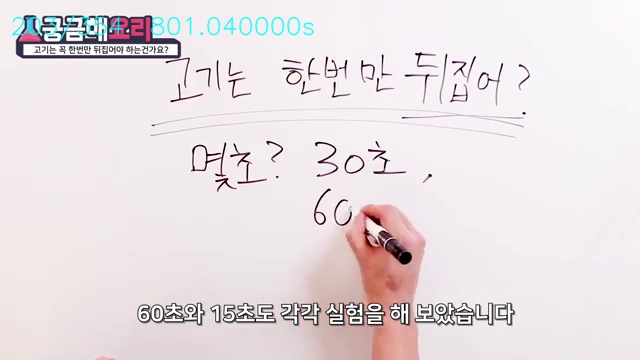 801.040000s
궁금해요리
고기는 꼭 한번만 뒤집어야 하는건가요?
고기는 한번만 뒤집어?
몇초? 30초,
60
60초와 15초도 각각 실험을 해 보았습니다